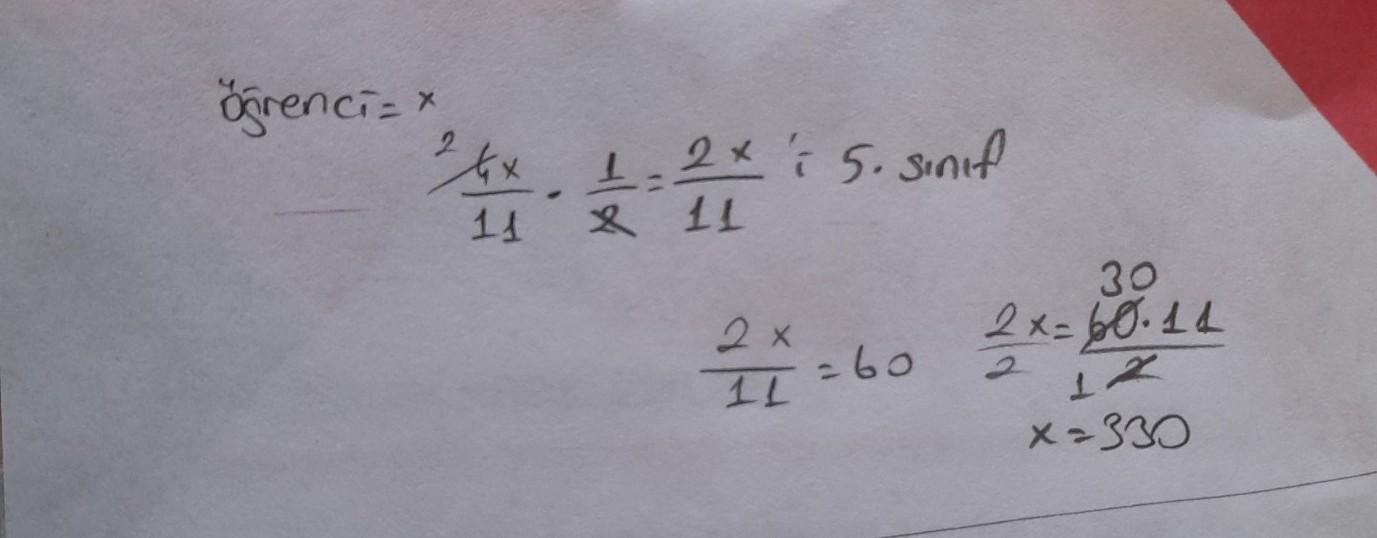 öğrenci = x
2 4x/11 . 1/2 = 2x/11 'i 5. sınıf
2x/11 = 60
2x/2 = 60.11/2 30 1
x = 330